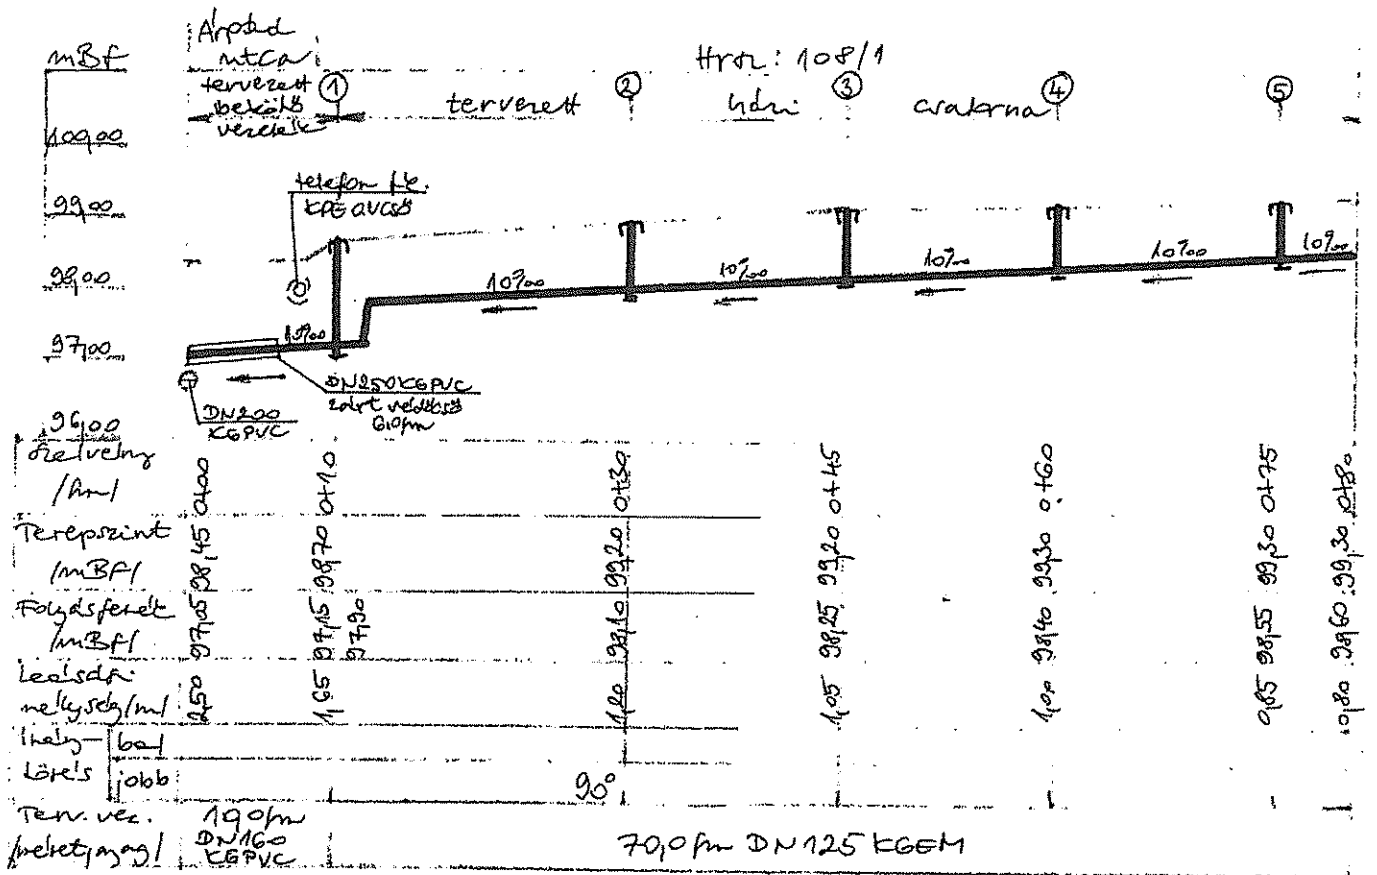 mBf
Árpád
utca
tervezett
bekötő
vezeték
Hrsz.: 108/1
1
2
3
4
5
tervezett házi csatorna
100,00
99,00
98,00
97,00
96,00
telefon fk.
KPE av.cső
10‰
10‰
10‰
10‰
10‰
10‰
DN250 KGPVC
zárt védőcső
6,0fm
DN200
KGPVC
Szelvény
/hm/
0+00 0+10 0+30 0+45 0+60 0+75 0+80
Terepszint
/mBf/
98,45 98,70 99,20 99,20 99,30 99,30 99,30
Folyásfenék
/mBf/
97,05 97,15 97,90 98,10 98,25 98,40 98,55 98,60
Leásási
mélység/m/
1,65 1,20 1,05 1,00 0,85 0,80
Irány-
törés
bal
jobb
90°
Terv. vez.
/méret,anyag/
10,0fm
DN160
KGPVC
70,0 fm DN125 KGEM